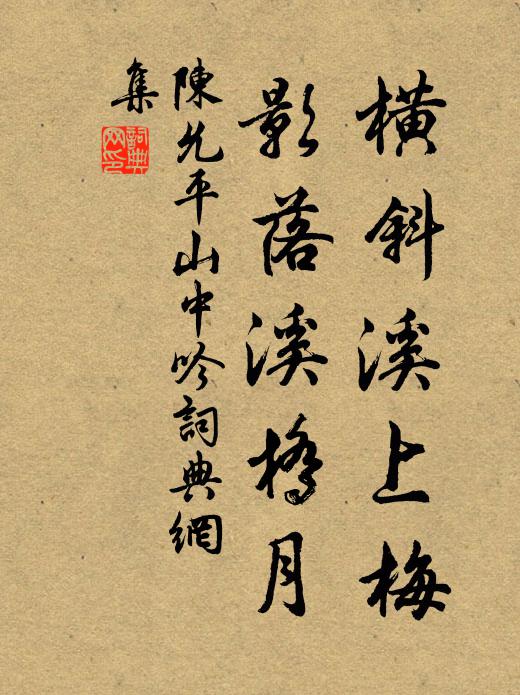 橫斜溪上梅
影落溪橋月
陳允平山中吟詞典網
集
詞典
网印